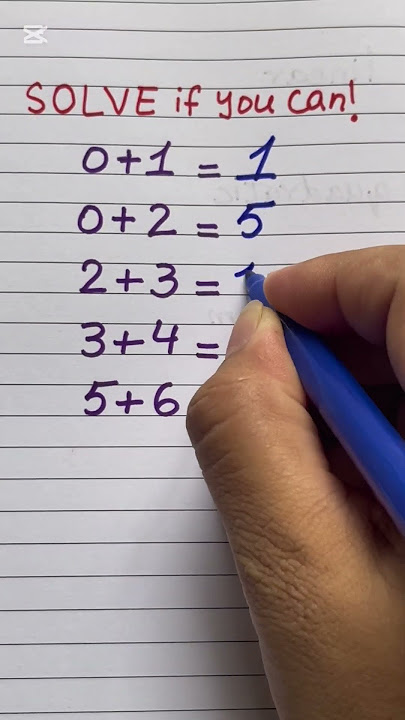 SOLVE if you can!
0+1 = 1
0+2 = 5
2+3 =
3+4 =
5+6